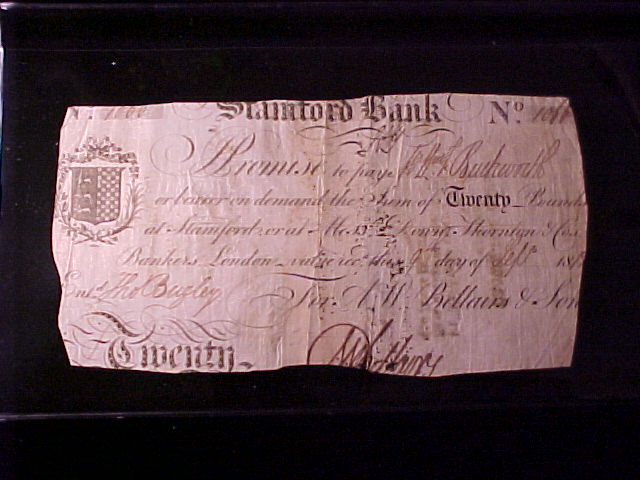 Stamford Bank No
I Promise to pay to Wm. Buckworth
or bearer on demand the Sum of Twenty Pounds
at Stamford or at Messrs Down Thornton & Co.
Bankers London value recd. this 9th day of Sept. 18
Entd. Tho Bugley For A W Bellairs & Son
Twenty